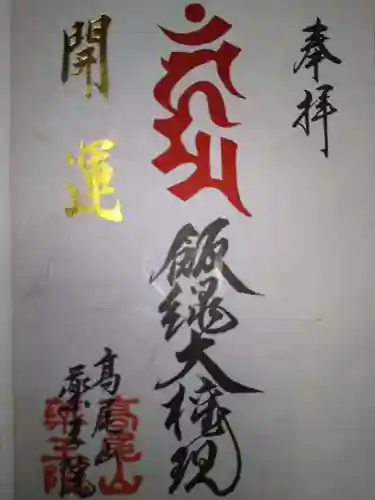 奉拝
飯縄大権現
開運
高尾山
薬王院
高尾山
薬王院